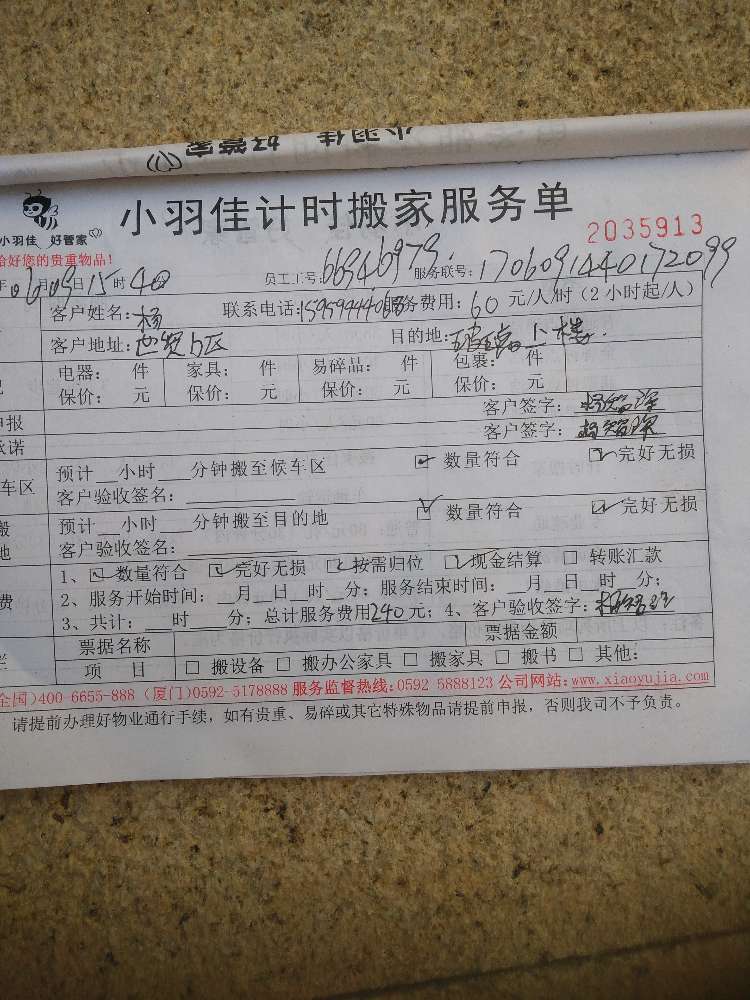 小羽佳 好管家
小羽佳计时搬家服务单
2035913
小羽佳 好管家
给好您的贵重物品!
年06月09日15时40分 员工工号:66946979 服务联号:1706091440172099
客户姓名:杨 联系电话: 服务费用:60元/人/时(2小时起/人)
客户地址: B区 目的地:
电器: 件 家具: 件 易碎品: 件 包裹: 件
保价: 元 保价: 元 保价: 元 保价: 元
申报 客户签字:
承诺 客户签字:
车区 预计___小时___分钟搬至候车区 ☑ 数量符合 ☑ 完好无损
客户验收签名:
预计___小时___分钟搬至目的地 ☑ 数量符合 ☑ 完好无损
客户验收签名:
1、☑ 数量符合 ☑ 完好无损 ☑ 按需归位 ☑ 现金结算 □ 转账汇款
费 2、服务开始时间:__月__日__时__分;服务结束时间:__月__日__时__分;
3、共计:___时___分;总计服务费用240元;4、客户验收签字:
票据名称 票据金额
项 目 □ 搬设备 □ 搬办公家具 □ 搬家具 □ 搬书 □ 其他:
全国)400-6655-888 (厦门)0592-5178888 服务监督热线:0592 5888123 公司网站:www.xiaoyujia.com
请提前办理好物业通行手续,如有贵重、易碎或其它特殊物品请提前申报,否则我司不予负责。